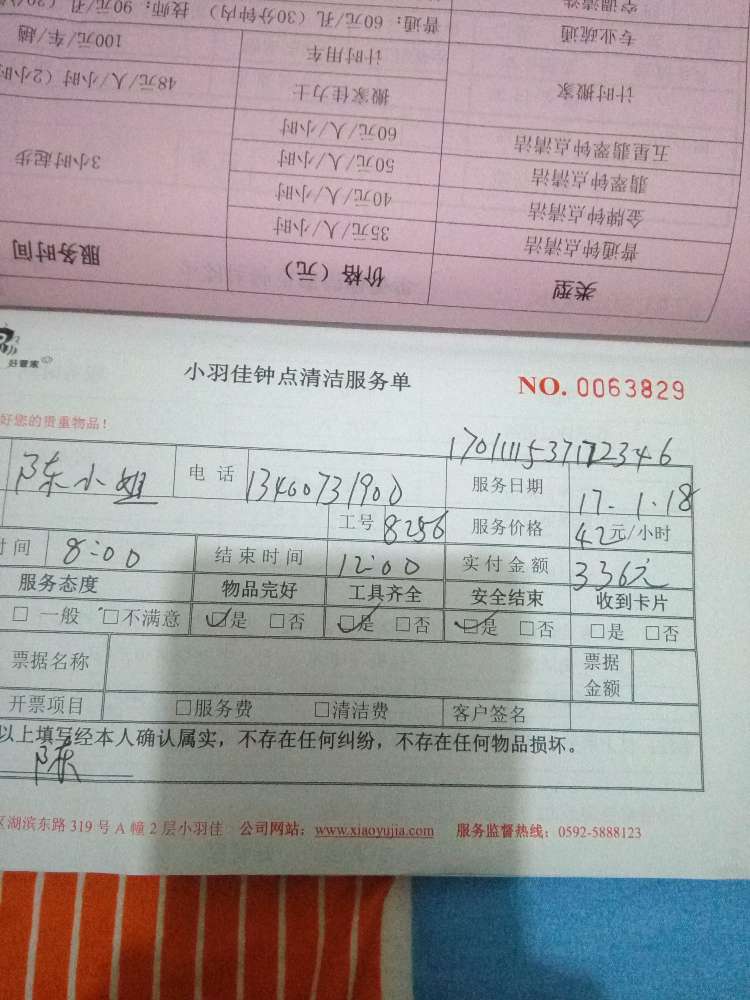 空调清洗
专业疏通 普通：60元/孔（30分钟内） 技师：90元/孔
计时搬家 计时用车 100元/车/趟
搬家佳力士 48元/人/小时（2小时
五星翡翠钟点清洁 60元/人/小时
翡翠钟点清洁 50元/人/小时 3小时起步
金牌钟点清洁 40元/人/小时
普通钟点清洁 35元/人/小时
类型 价格（元） 服务时间
好管家
小羽佳钟点清洁服务单 NO. 0063829
好您的贵重物品！
17011115371712346
陈小姐 电话 13400731900 服务日期 17.1.18
工号 8256 服务价格 42元/小时
时间 8:00 结束时间 12:00 实付金额 336元
服务态度 物品完好 工具齐全 安全结束 收到卡片
□ 一般 □不满意 □是 □否 □是 □否 □是 □否 □是 □否
票据名称 票据金额
开票项目 □服务费 □清洁费 客户签名
以上填写经本人确认属实，不存在任何纠纷，不存在任何物品损坏。
陈
区湖滨东路 319 号 A 幢 2 层小羽佳 公司网站：www.xiaoyujia.com 服务监督热线：0592-5888123